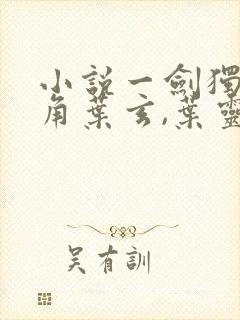 小說一劍獨
角葉玄,葉靈
吳有訓